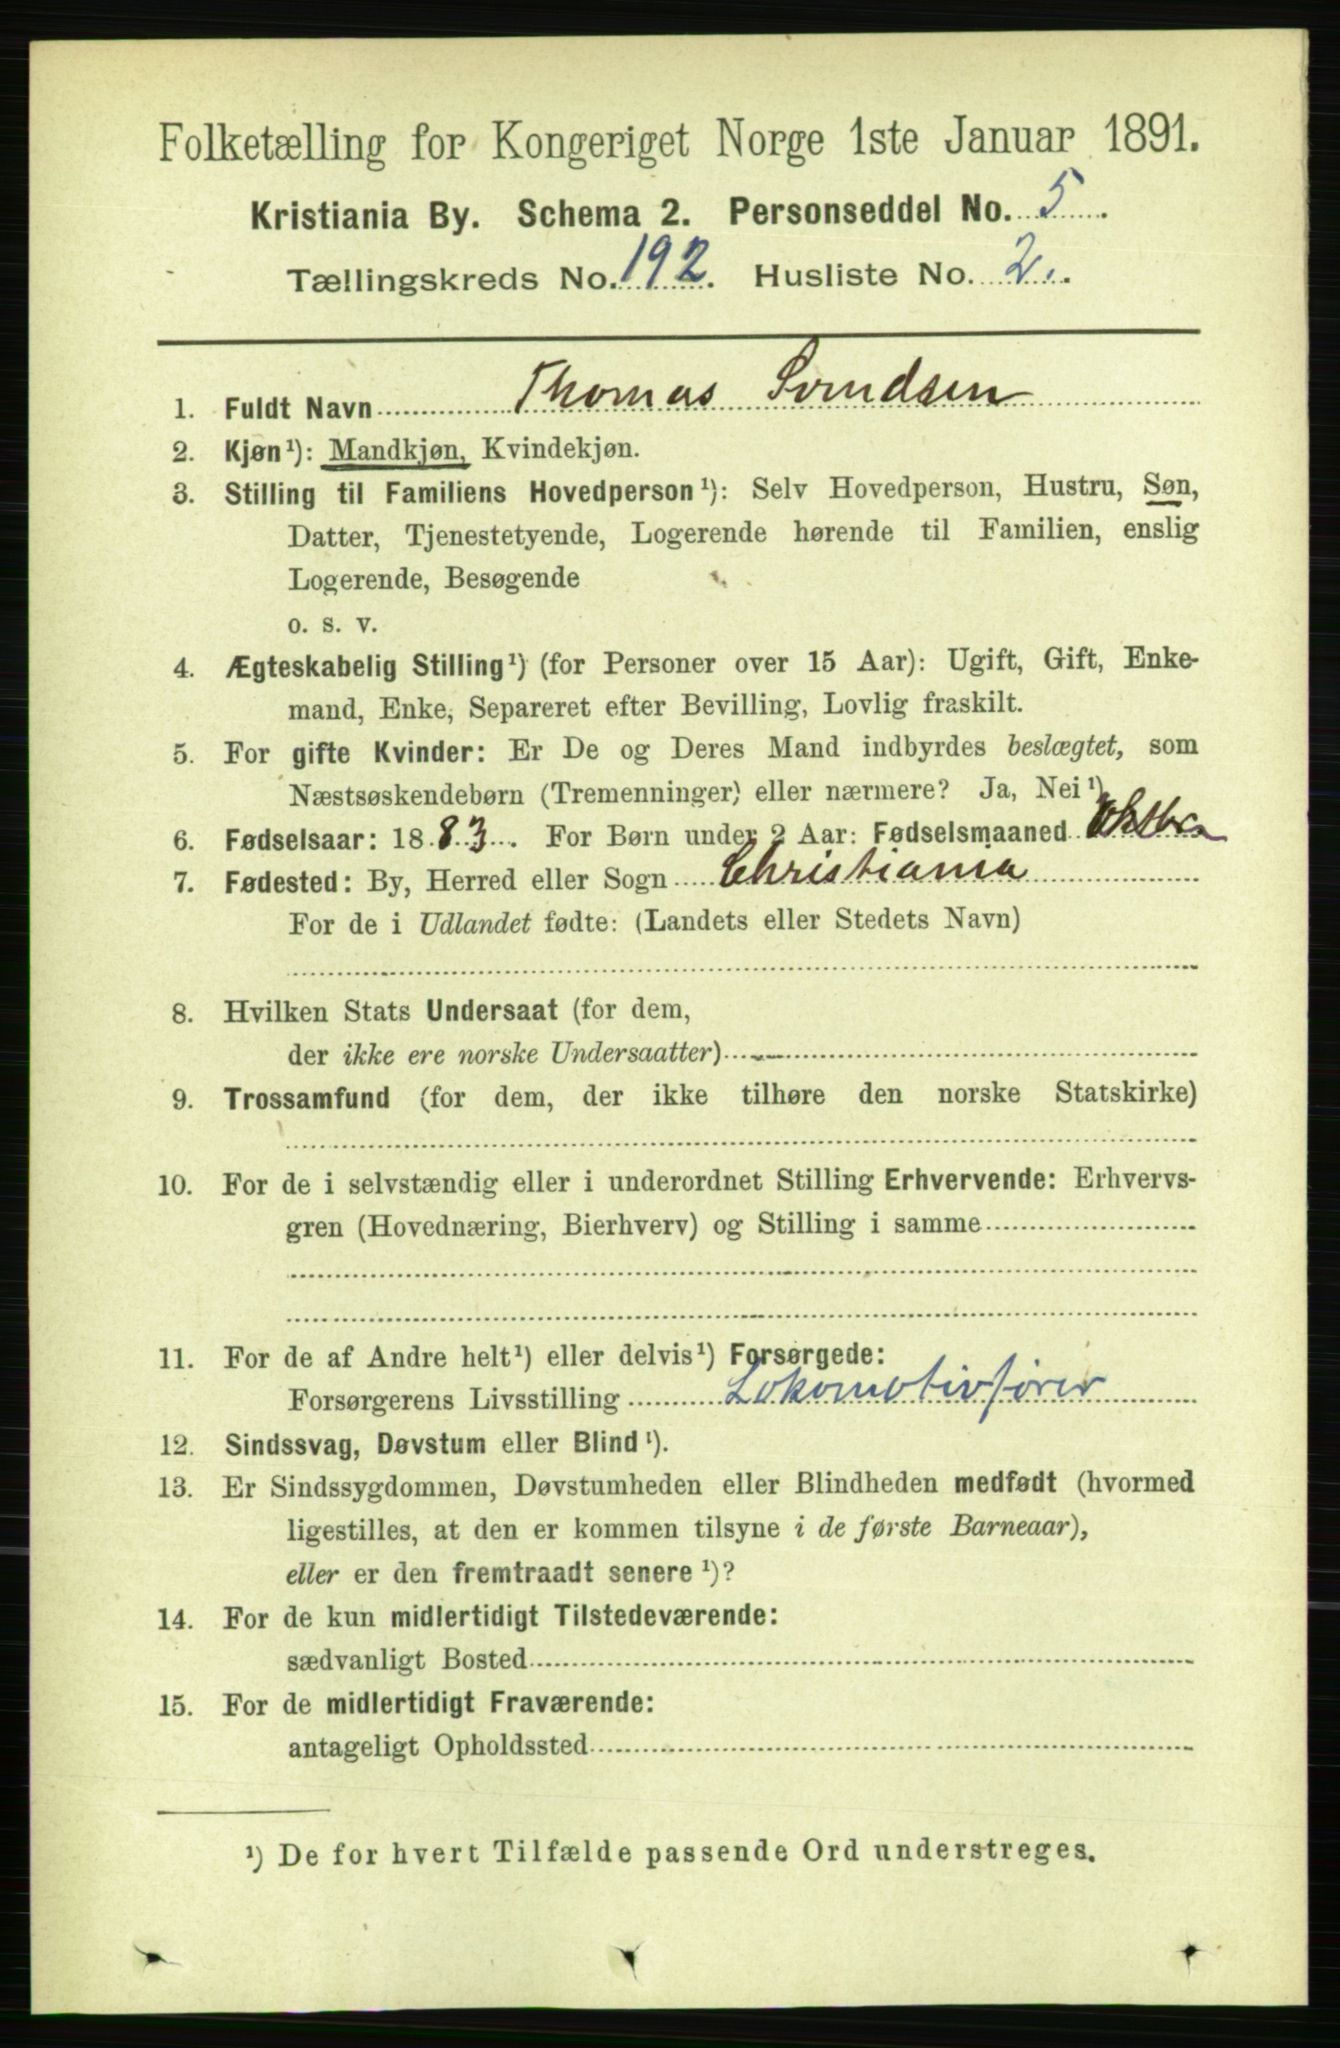 Folketælling for Kongeriget Norge 1ste Januar 1891.
Kristiania By. Schema 2. Personseddel No. 5.
Tællingskreds No. 192. Husliste No. 2.
1. Fuldt Navn Thomas Svendsen
2. Kjøn¹): Mandkjøn, Kvindekjøn.
3. Stilling til Familiens Hovedperson¹): Selv Hovedperson, Hustru, Søn,
Datter, Tjenestetyende, Logerende hørende til Familien, enslig
Logerende, Besøgende
o. s. v.
4. Ægteskabelig Stilling¹) (for Personer over 15 Aar): Ugift, Gift, Enke-
mand, Enke, Separeret efter Bevilling, Lovlig fraskilt.
5. For gifte Kvinder: Er De og Deres Mand indbyrdes beslægtet, som
Næstsøskendebørn (Tremenninger) eller nærmere? Ja, Nei¹)
6. Fødselsaar: 1883. For Børn under 2 Aar: Fødselsmaaned
7. Fødested: By, Herred eller Sogn Christiania
For de i Udlandet fødte: (Landets eller Stedets Navn)
8. Hvilken Stats Undersaat (for dem,
der ikke ere norske Undersaatter)
9. Trossamfund (for dem, der ikke tilhøre den norske Statskirke)
10. For de i selvstændig eller i underordnet Stilling Erhvervende: Erhvervs-
gren (Hovednæring, Bierhverv) og Stilling i samme
11. For de af Andre helt¹) eller delvis¹) Forsørgede:
Forsørgerens Livsstilling Lokomotivfører
12. Sindssvag, Døvstum eller Blind¹).
13. Er Sindssygdommen, Døvstumheden eller Blindheden medfødt (hvormed
ligestilles, at den er kommen tilsyne i de første Barneaar),
eller er den fremtraadt senere¹)?
14. For de kun midlertidigt Tilstedeværende:
sædvanligt Bosted
15. For de midlertidigt Fraværende:
antageligt Opholdssted
¹) De for hvert Tilfælde passende Ord understreges.